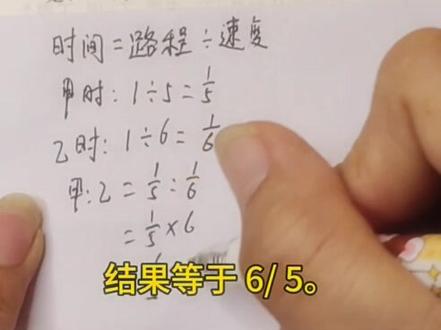 时间=路程÷速度
甲时:1÷5=1/5
乙时:1÷6=1/6
甲:乙=1/5:1/6
=1/5×6
结果等于 6/ 5。